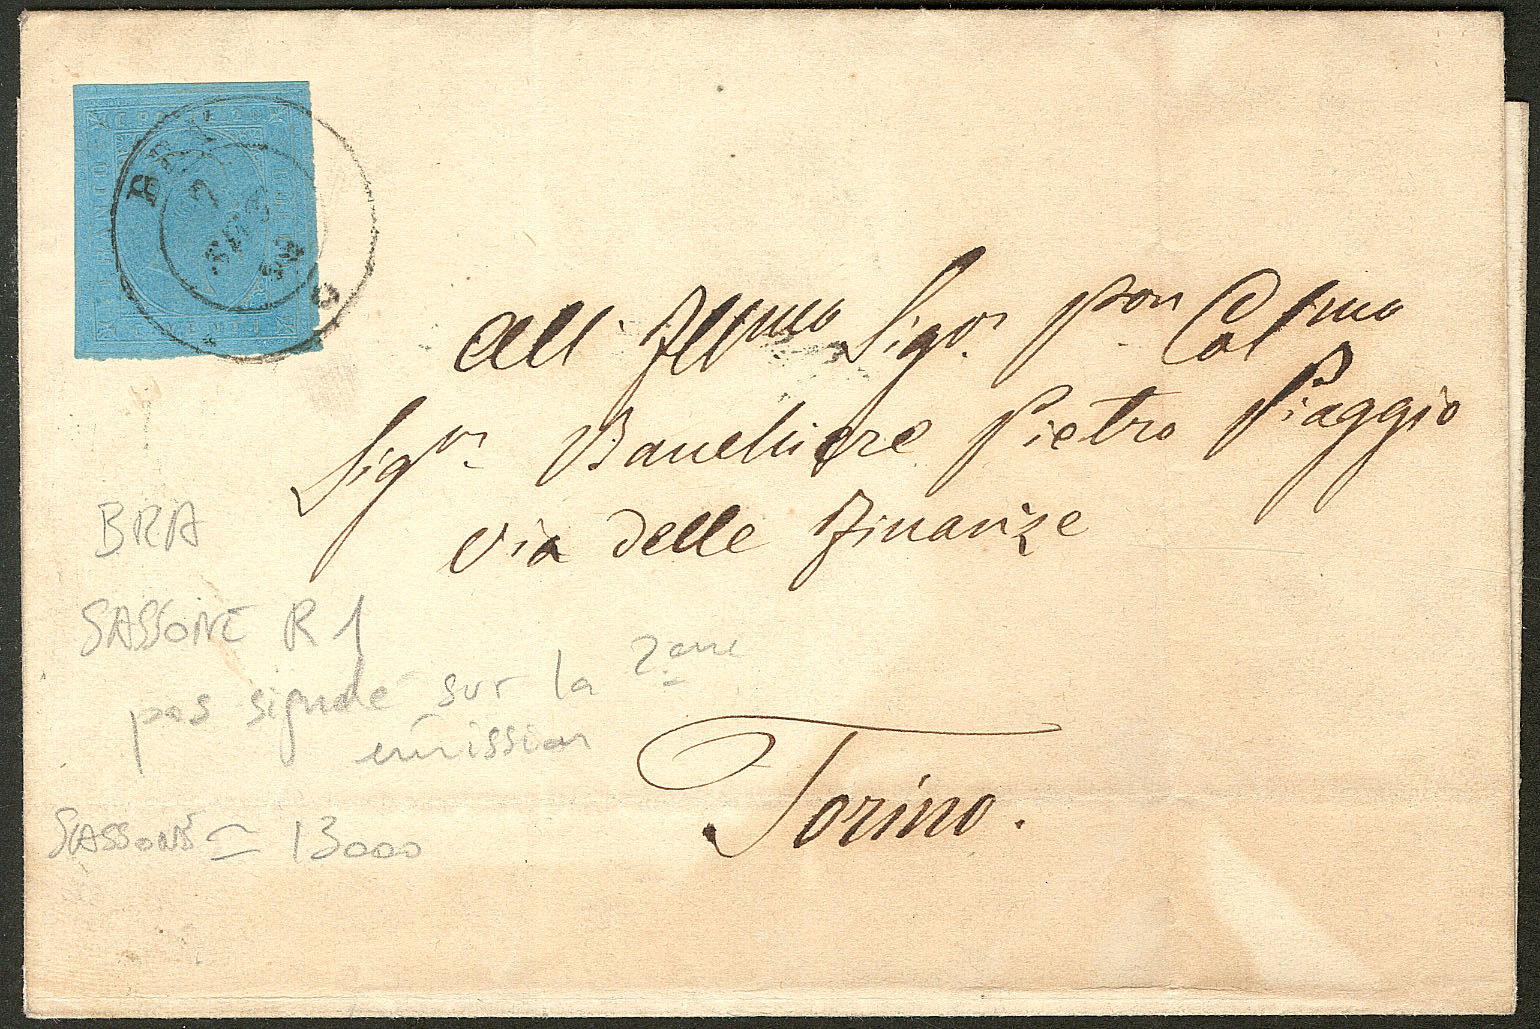 BRA
All' Ill.mo Sigr. Pron Col.mo
Sigr. Banchiere Pietro Piaggio
via delle Finanze
Torino.
BRA
SASSONE R1
pas signalé sur la 2eme
emission
SASSONE = 13000